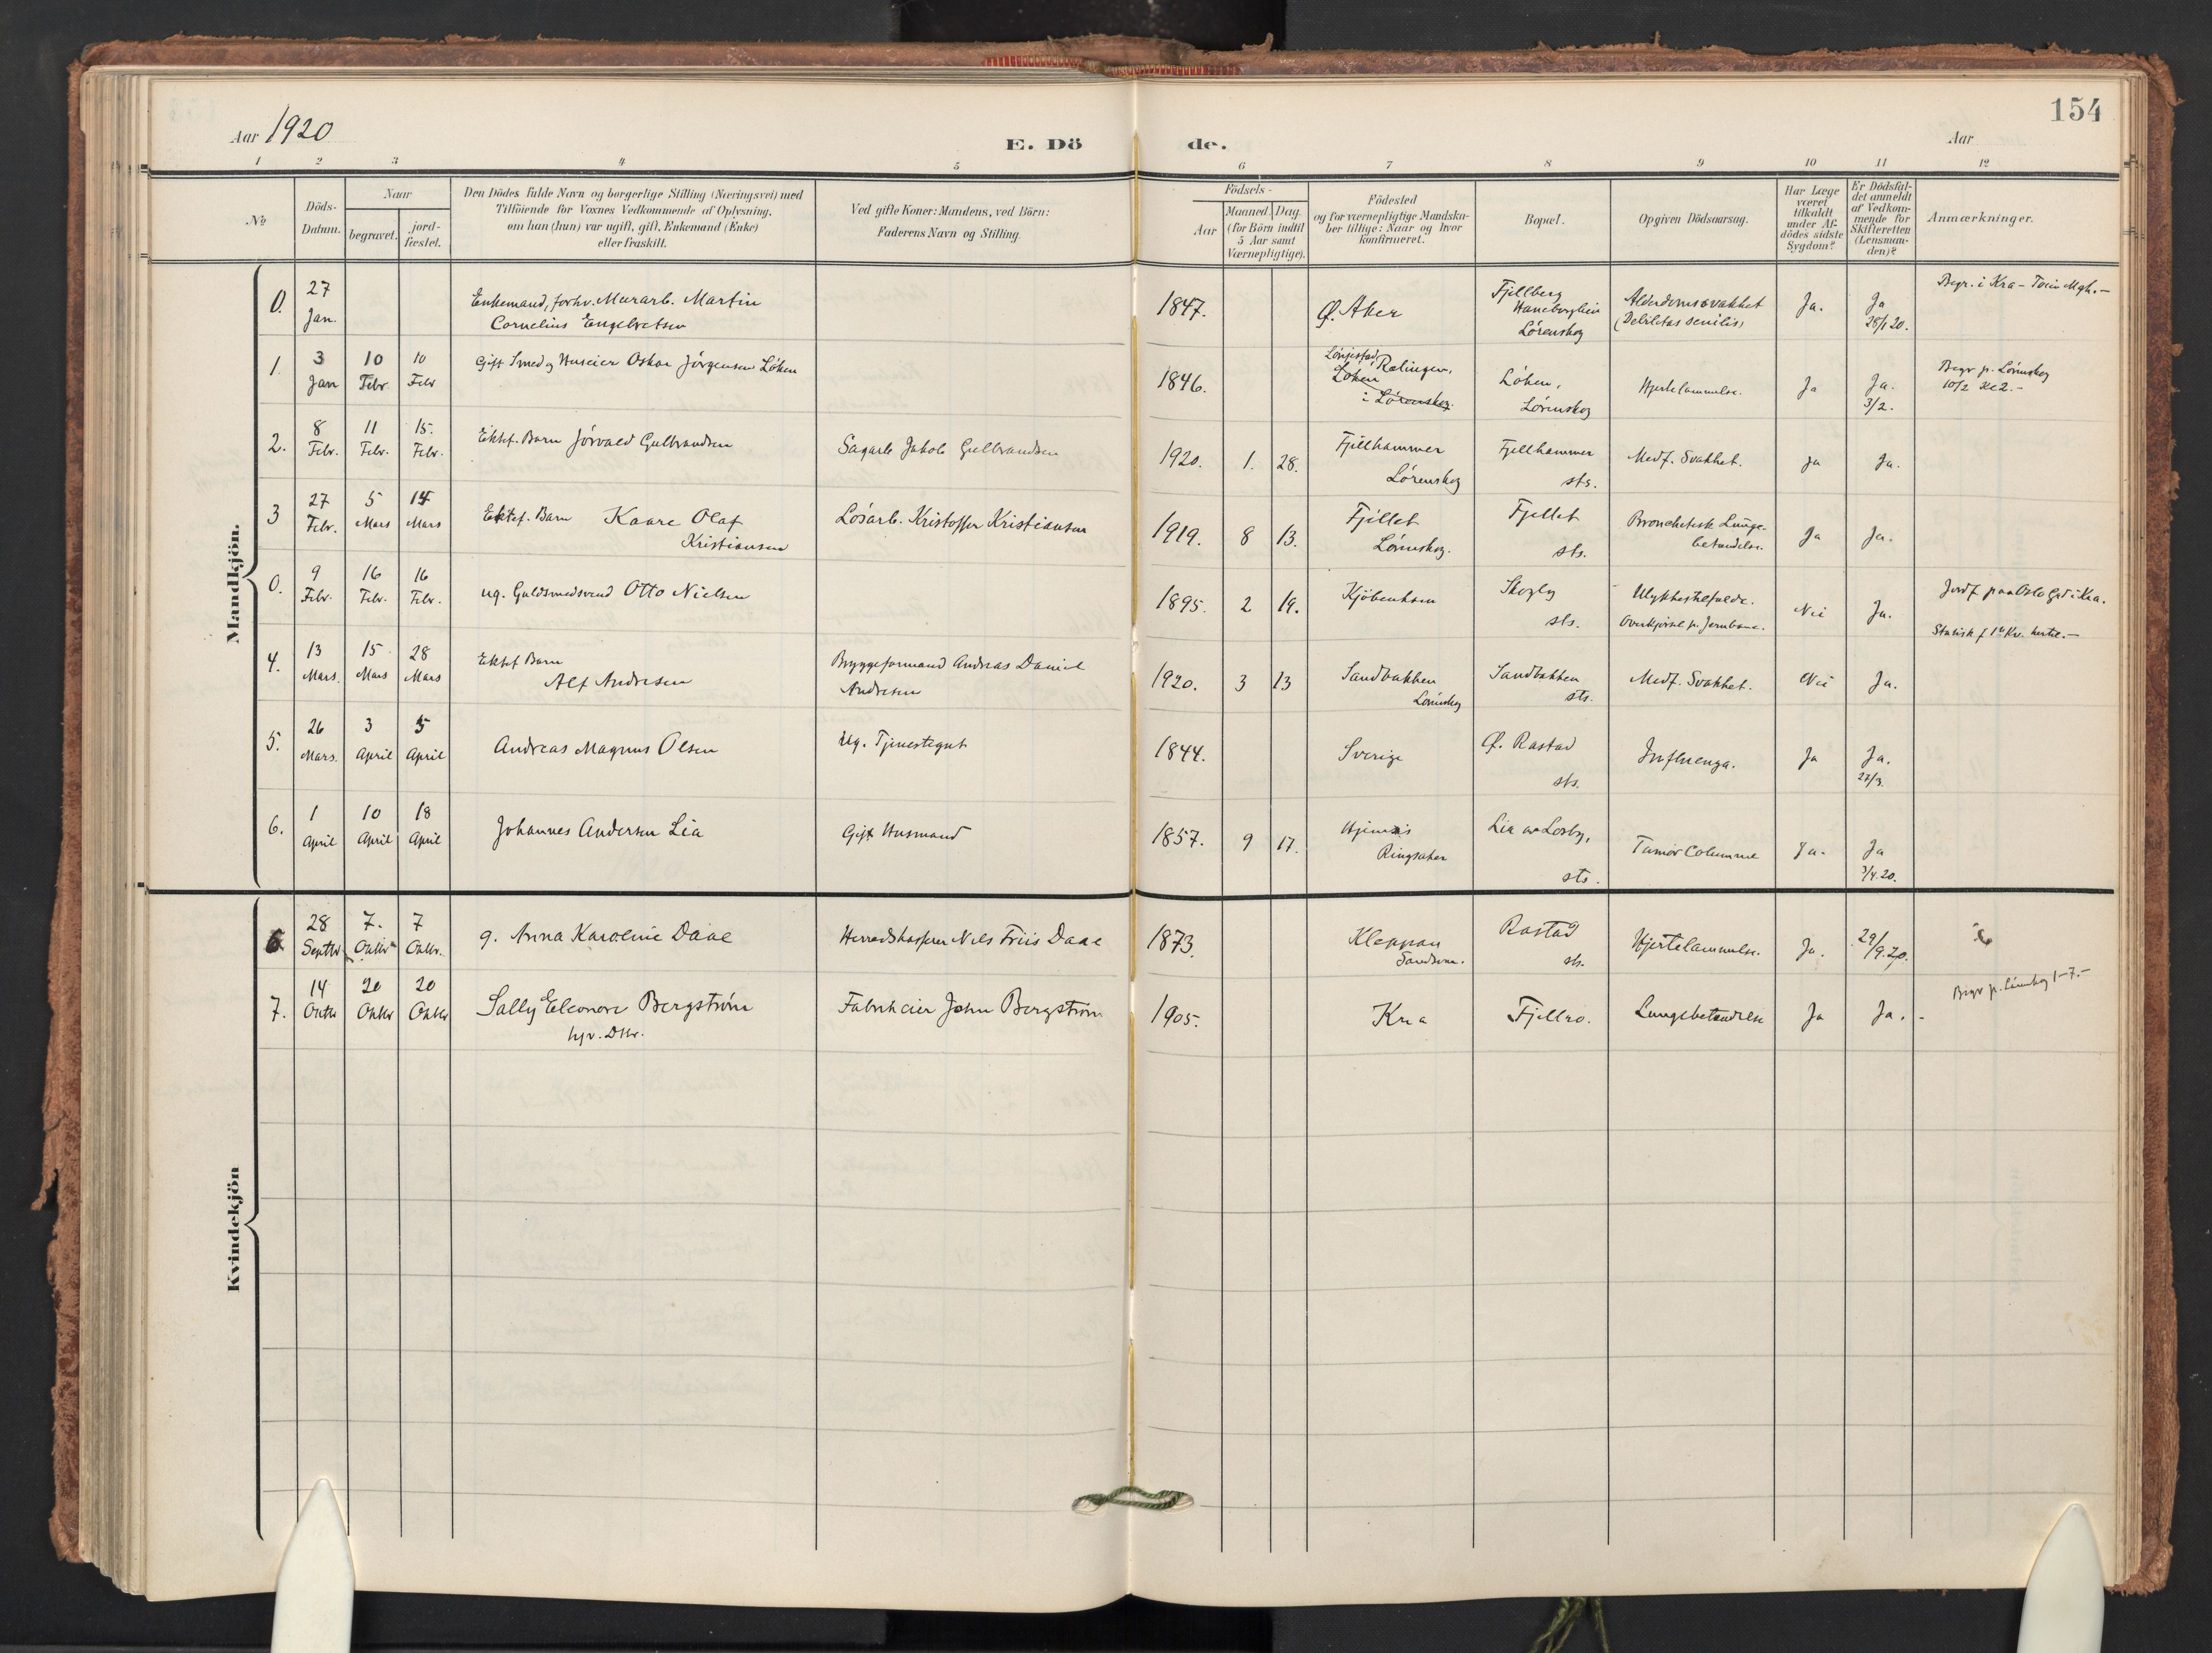 154
Aar 1920
E. Dö de.
Aar
1 2 3 4 5 6 7 8 9 10 11 12
No
Döds-
Datum.
Naar
begravet.
jord-
fæstet.
Den Dödes fulde Navn og borgerlige Stilling (Næringsvei) med
Tilföiende for Voxnes Vedkommende af Oplysning,
om han (hun) var ugift, gift, Enkemand (Enke)
eller fraskilt.
Ved gifte Koner: Mandens, ved Börn:
Faderens Navn og Stilling.
Födsels-
Aar
Maaned. Dag.
(for Börn indtil
5 Aar samt
Værnepligtige).
Födested
og for værnepligtige Mandska-
ber tillige: Naar og hvor
konfirmeret.
Bopæl.
Opgiven Dödsaarsag.
Har Læge
været
tilkaldt
under Af-
dödes sidste
Sygdom?
Er Dödsfal-
det anmeldt
af Vedkom-
mende for
Skifteretten
(Lensman-
den)?
Anmærkninger.
Mandkjön.
0. 27 Jan.
Enkemand, forhv. Murarb. Martin
Cornelius Engelvetsen
1847.
Ø. Aker
Fjellberg
Haneborglien
Lörenskog
Alderdomssvakhet
(Debilitas senilis)
Ja.
Ja
28/1 20.
Begr. i Kra -
1. 3 Jan 10 Febr. 10 Febr
Gift Smed og Huseier Oskar Jörgensen Löken
1846.
Rælingen,
Löken
i Lörenskog.
Löken,
Lörenskog
Hjertelammelse.
Ja
Ja.
3/2.
Begr p. Lörenskog
10/2
2. 8 Febr. 11 Febr. 15. Febr.
Ektef. Barn Jörvald Gulbrandsen
Sagarb Jakob Gulbrandsen
1920. 1. 28.
Fjellhammer
Lörenskog
Fjellhammer
sts.
Medf. Svakhet.
Ja
Ja.
3 27 Febr. 5 Mars 14 Mars
Ektef. Barn Kaare Olaf
Kristiansen
Lösarb. Kristoffer Kristiansen
1919. 8 13.
Fjellet
Lörenskog.
Fjellet
sts.
Bronchetisk Lunge-
betændelse.
Ja
Ja.
0. 9 Febr. 16 Febr. 16 Febr.
ug. Guldsmedsvend Otto Nielsen
1895. 2 19.
Kjöbenhavn
Skogly
sts.
Ulykkestilfælde.
Overkjörsel p. Jernbane.
Nei
Ja.
Jordf paa Oslo Gvd i Kra.
4. 13 Mars. 15 Mars 28 Mars
Ektef Barn
Alf Andresen
Bryggeformand Andreas Daniel
Andresen
1920. 3 13
Sandbakken
Lörenskog
Sandbakken
sts.
Medf. Svakhet.
Nei
Ja.
5. 26 Mars. 3 April 5 April
Andreas Magnus Olsen
Ug. Tjenestegut
1844.
Sverige
Ø. Rastad
sts.
Influenza.
Ja
Ja.
27/3.
6. 1 April 10 April 18 April
Johannes Andersen Lia
Gift Husmand
1857. 9 17.
Ringsaker
Lia av Losby,
sts.
Tumor Columnae
Ja.
Ja
3/4.20.
Kvindekjön
6. 28 Septbr 7. Oktbr 7 Oktbr.
g. Anna Karoline Daae
Herredskasserer Nils Friis Daae
1873.
Kleppan
Sandsvær.
Rastad
sts.
Hjertelammelse.
Ja.
29/9.20.
7. 14 Oktbr 20 Oktbr 20 Oktbr
Sally Eleonore Bergström
hjv. Dtr.
Fabrikeier John Bergström
1905.
Kra
Fjellro.
Lungebetændelse
Ja
Ja.
Begr p. Lörenskog 1-7.-